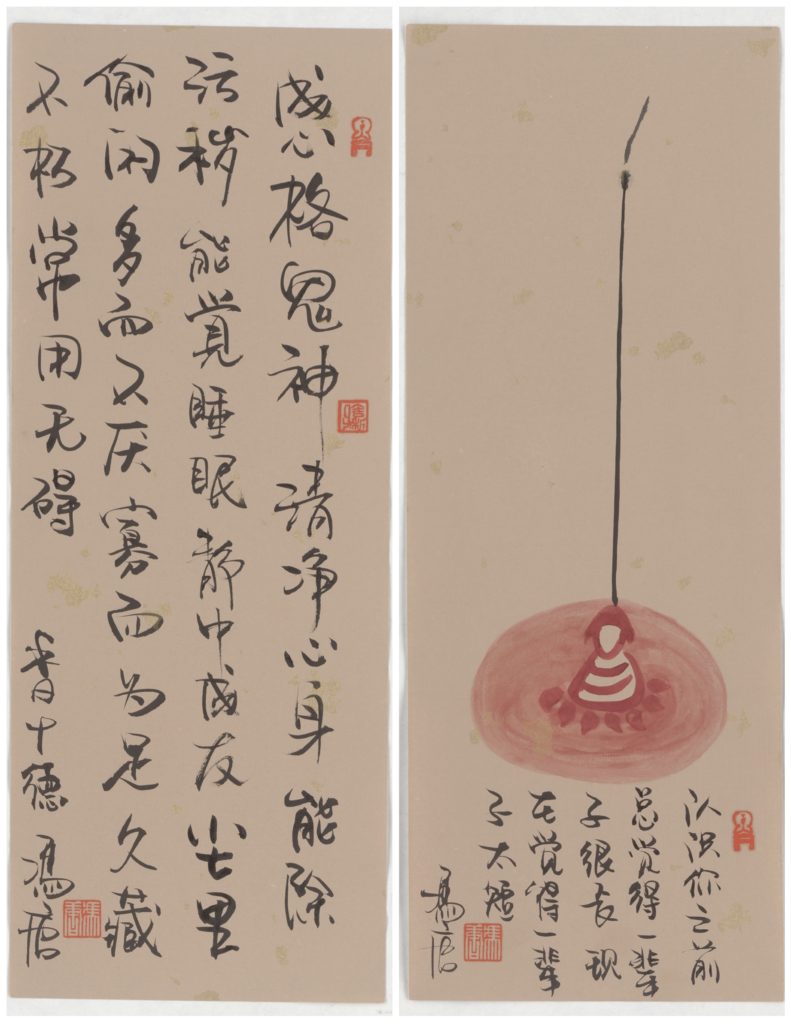 感格鬼神清净心身能除
污秽能觉睡眠静中成友尘里
偷闲多而不厌寡而为足久藏
不朽常用无碍
香十德 冯唐
认识你之前
总觉得一辈
子很长 现
在觉得一辈
子太短
冯唐